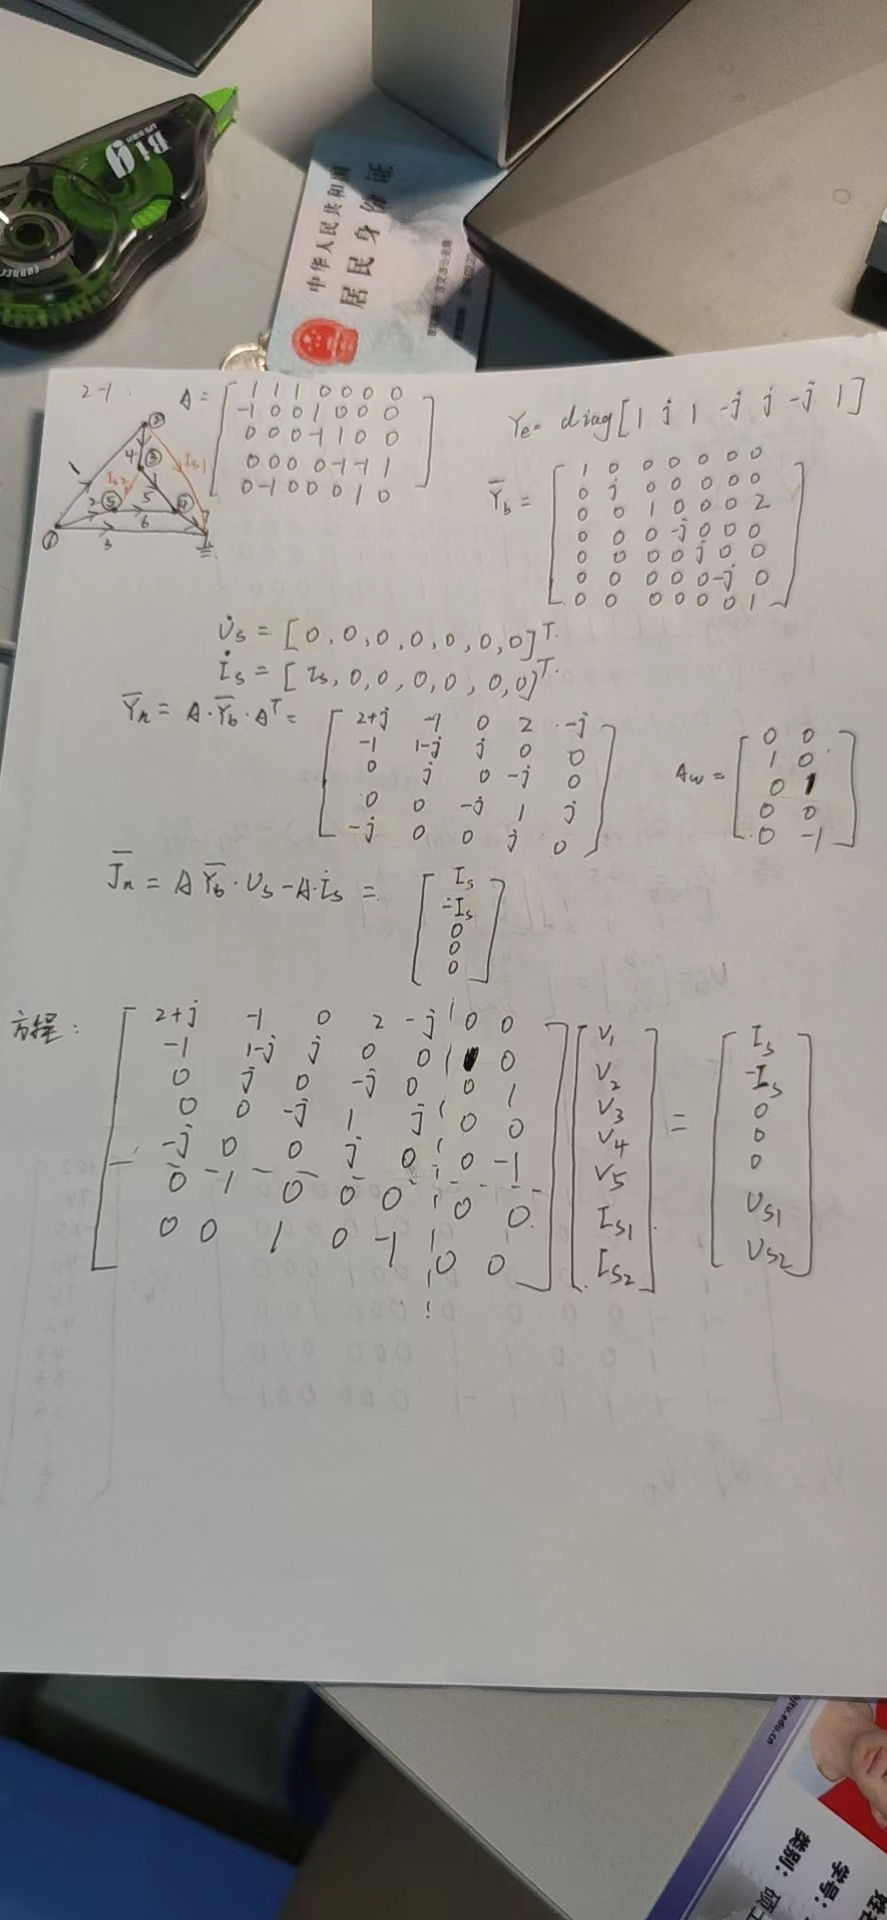 Big
CORREC
中华人民共和国
居民身份证
2-1:
A = [
1 1 1 0 0 0 0
-1 0 0 1 0 0 0
0 0 0 -1 1 0 0
0 0 0 0 -1 -1 1
0 -1 0 0 0 1 0
]
① ② ③ ④ ⑤
1 2 3 4 5 6 7
Is1 Is2
Ye = diag[1 j 1 -j j -j 1]
Y̅b = [
1 0 0 0 0 0 0
0 j 0 0 0 0 0
0 0 1 0 0 0 2
0 0 0 -j 0 0 0
0 0 0 0 j 0 0
0 0 0 0 0 -j 0
0 0 0 0 0 0 1
]
U̇s = [0, 0, 0, 0, 0, 0, 0]ᵀ.
İs = [Is, 0, 0, 0, 0, 0, 0]ᵀ.
Y̅n = A·Y̅b·Aᵀ = [
2+j -1 0 2 -j
-1 1-j j 0 0
0 j 0 -j 0
0 0 -j 1 j
-j 0 0 j 0
]
Aw = [
0 0
1 0
0 1
0 0
0 -1
]
J̅n = A Y̅b·Us - A·İs = [
Is
-Is
0
0
0
]
方程:
[
2+j -1 0 2 -j 0 0
-1 1-j j 0 0 0
0 j 0 -j 0 0 1
0 0 -j 1 j 0 0
-j 0 0 j 0 0 -1
0 1 0 0 0 0 0
0 0 1 0 -1 0 0
] [
V1
V2
V3
V4
V5
Is1
Is2
] = [
Is
-Is
0
0
0
Us1
Us2
]
jtu.edu.cn
学号:
类别: 硕士